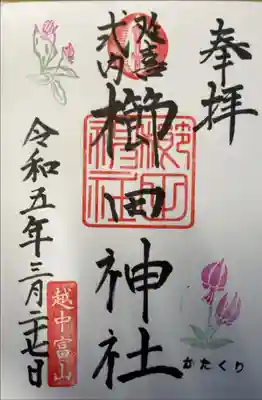 奉拝
延喜
式内
櫛田神社
令和五年三月二十七日
越中富山
かたくり